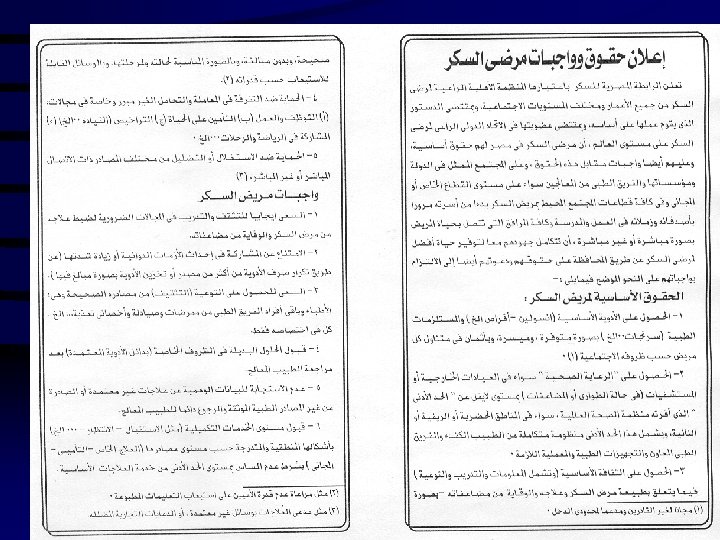 إعلان حقوق وواجبات مرضى السكر
تعلن الرابطة المصرية للسكر باعتبارها المنظمة الأهلية الراعية لمرضى
السكر من جميع الأعمار ومختلف المستويات الاجتماعية، وبمقتضى الدستور
الذى يقوم عملها على أساسه، وبمقتضى عضويتها فى الاتحاد الدولى الراعى لمرضى
السكر على مستوى العالم، أن مرضى السكر فى مصر لهم حقوق أساسية،
وعليهم أيضا واجبات مقابل هذه الحقوق، وعلى المجتمع الممثل فى الدولة
ومؤسساتها والفريق الطبى من المعالجين سواء على مستوى القطاع الخاص أو
المجانى وفى كافة قطاعات المجتمع المحيط بمريض السكر بدءا من أسرته مرورا
بأصدقائه وزملائه فى العمل والمدرسة وكافة المرافق التى تتصل بحياة المريض
بصورة مباشرة أو غير مباشرة، أن تتكامل جهودهم معا لتوفير حياة أفضل
لمرضى السكر عن طريق المحافظة على حقوقهم ودعوتهم أيضا إلى الالتزام
بواجباتهم على النحو الموضح فيما يلى :-
الحقوق الأساسية لمريض السكر :
١- الحصول على الأدوية الأساسية (أنسولين - أقراص الخ) والمستلزمات
الطبية (سرنجات ٠٠ الخ) بصورة متوفرة، وميسرة، وبأثمان فى متناول كل
مريض حسب ظروفه الاجتماعية (١)٠
٢- الحصول على "الرعاية الصحية" سواء فى العيادات الخارجية أو
المستشفيات (فى حالة الطوارئ أو المضاعفات) بمستوى لايقل عن "الحد الأدنى
" الذى أقرته منظمة الصحة العالمية، سواء فى المناطق الحضرية أو الريفية أو
النائية، ويشمل هذا الحد الأدنى منظومة متكاملة من الطبيب الكفء والفريق
الطبى المعاون والتجهيزات الطبية والمعملية اللازمة٠
٣- الحصول على الثقافة الأساسية (وتشمل المعلومات والتدريب والتوعية)
فيما يتعلق بطبيعة مرض السكر وعلاجه والوقاية من مضاعفاته - بصورة
(١) مجانا لغير القادرين ومدعما لمحدودى الدخل٠
صحيحة، وبدون مبالغة، وبالصورة المناسبة لحالته ولمرحلته وبالوسائل القابلة
للاستيعاب حسب قدراته (٢)٠
٤- الحماية ضد التفرقة فى المعاملة والتحامل الغير مبرر وخاصة فى مجالات،
(أ) التوظف والعمل (ب) التأمين على الحياة (ج) التراخيص (القيادة ٠٠٠ الخ) (د)
المشاركة فى الرياضة والرحلات ٠٠٠ الخ٠
٥- الحماية ضد الاستغلال أو التضليل من مختلف المصادر ذات الاتصال
المباشر أو غير المباشر، (٣)
واجبات مريض السكر
١- السعى إيجابيا للتثقف والتدريب فى المجالات الضرورية لضبط علاجه
من مرض السكر والوقاية من مضاعفاته٠
٢- الامتناع عن المشاركة فى إحداث الأزمات الدوائية أو زيادة شدتها (عن
طريق تكرار صرف الأدوية من أكثر من مصدر أو تخزين الأدوية بصورة مبالغ فيها)٠
٣- السعى للحصول على التوعية (التثقيف) من مصادره الصحيحة وهى؛
الأطباء وباقى أفراد الفريق الطبى من ممرضات وصيادلة وأخصائى تغذية،،، الخ٠
كل فى اختصاصه فقط٠
٤- قبول الحلول البديلة فى الظروف الخاصة (بدائل الأدوية المعتمدة) بعد
مراجعة الطبيب المعالج٠
٥- عدم الاستجابة للبيانات الوهمية عن علاجات غير معتمدة أو الصادرة
عن غير المصادر الطبية الموثقة والرجوع دائما للطبيب المعالج٠
٦- قبول مستوى الخدمات التكميلية (مثل الاستقبال - الانتظار ٠٠٠ الخ)
بأشكالها المنطقية والمتدرجة حسب مستوى مصادرها (العلاج الخاص - التأمينى -
المجانى) بشرط عدم المساس بمستوى الحد الأدنى من خدمة العلاجات الأساسية٠
(٢) مثل مراعاة عدم قدرة الأميين على استيعاب التعليمات المطبوعة٠
(٣) مثل مدعى العلاجات بوسائل غير معتمدة، أو الدعايات التجارية المضللة